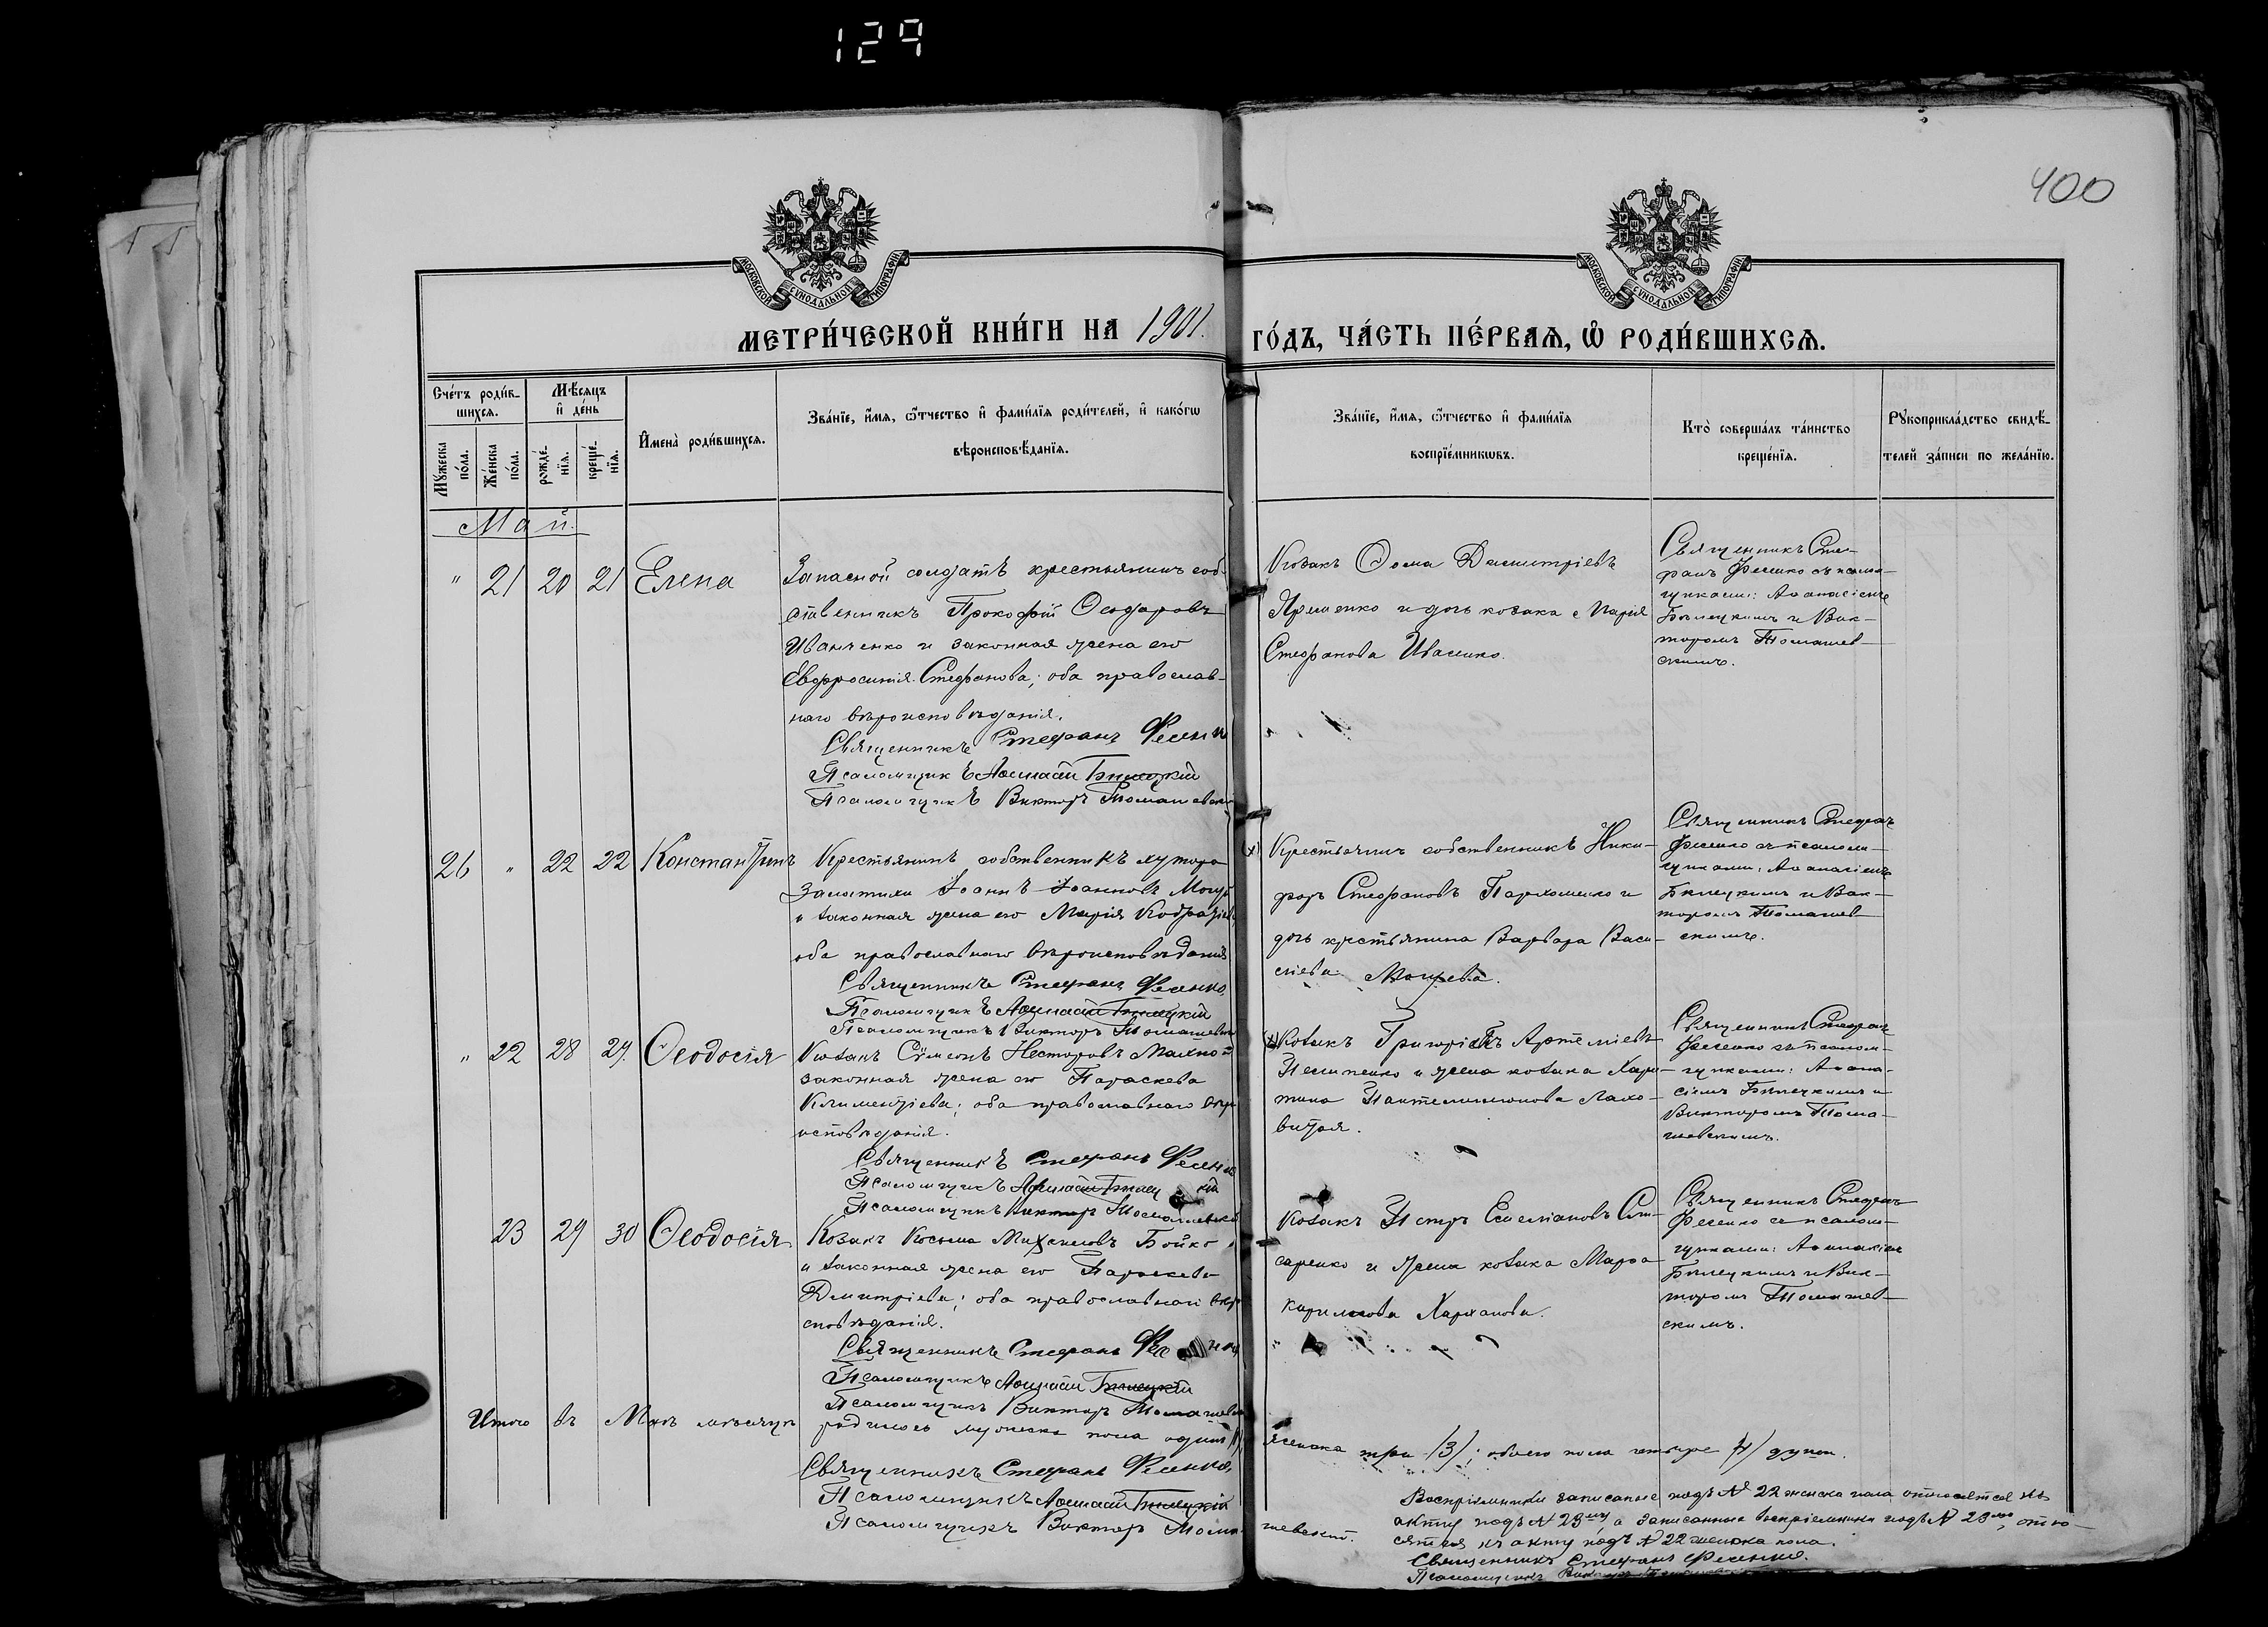 129
400
МОСКОВСКОЙ СУНОДАЛЬНОЙ ТИПОГРАФІИ
МОСКОВСКОЙ СУНОДАЛЬНОЙ ТИПОГРАФІИ
МЕТРИ́ЧЕСКОЙ КНИ́ГИ НА 1901.
ГО́ДЪ, ЧА́СТЬ ПЕ́РВАѦ, Ѽ РОДИ́ВШИХСѦ.
Сче́тъ роди́в-
шихся.
Мѣ́сяцъ
и҆ де́нь
Му́жеска
по́ла.
Же́нска
по́ла.
рожде́-
нїя.
креще́-
нїя.
И҆мена̀ роди́вшихся.
Зва́нїе, и҆́мя, ѻ҆́тчество и҆ фами́лїя роди́телей, и҆ како́гѡ
вѣроисповѣ́данїя.
Зва́нїе, и҆́мя, ѻ҆́тчество и҆ фами́лїя
воспрїе́мникѡвъ.
Кто̀ соверша́лъ та́инство
креще́нїя.
Рꙋкоприкла́дство свидѣ́-
телей за́писи по жела́нїю.
Май.
" 21 20 21 Елена
Запасной солдатъ крестьянинъ соб-
ственникъ Прокофій Ѳеодоровъ
Иванченко и законная жена его
Евфросинія Стефанова; оба православ-
наго вѣроисповѣданія.
Священникъ Стефанъ Фесенко
Псаломщикъ Аѳанасій Билецкій
Псаломщикъ Викторъ Томашевскій
Козакъ Ѳома Димитріевъ
Яременко и дочь козака Марія
Стефанова Ивашко.
Священникъ Сте-
фанъ Фесенко съ псалом-
щиками: Аѳанасіемъ
Билецкимъ и Вик-
торомъ Томашев-
скимъ.
26 " 22 22 Константинъ
Крестьянинъ собственникъ хутора
Іоаннъ Іоанновъ
и законная жена его Марія
оба православнаго вѣроисповѣданія
Священникъ Стефанъ Фесенко.
Псаломщикъ Аѳанасій Билецкій
Псаломщикъ Викторъ Томашевскій
(х) Крестьянинъ собственникъ Ники-
форъ Стефановъ Пархоменко и
дочь крестьянина Варвара Васи-
ліева
Священникъ Стефанъ
Фесенко съ псалом-
щиками: Аѳанасіемъ
Билецкимъ и Вик-
торомъ Томашев-
скимъ.
" 22 28 29. Ѳеодосія
Козакъ Сѵмеонъ Несторовъ
законная жена его Параскева
Климентіева; оба православнаго вѣро
исповѣданія.
Священникъ Стефанъ Фесенко
Псаломщикъ Аѳанасій Билецкій
Псаломщикъ Викторъ Томашевскій
(х) Козакъ Артеміевъ
и жена козака Хари-
тина Пантелеимонова
Священникъ Стефанъ
Фесенко съ псалом-
щиками: Аѳана-
сіемъ Билецкимъ и
Викторомъ Тома-
шевскимъ.
23 29 30 Ѳеодосія
Козакъ Косьма Михаиловъ Бойко
и законная жена его Параскева
Димитріева; оба православнаго вѣро
сповѣданія.
Священникъ Стефанъ Фесенко
Псаломщикъ Аѳанасій Билецкій
Псаломщикъ Викторъ Томашевскій
Козакъ Петръ Емеліановъ
и жена козака Марѳа
Кирилова
Священникъ Стефанъ
Фесенко съ псалом-
щиками: Аѳанасіемъ
Билецкимъ и Вик-
торомъ Томашев-
скимъ.
Итого въ Маѣ мѣсяцѣ родилось мужеска пола одинъ /1/, женска три /3/; обоего пола четыре /4/ души.
Священникъ Стефанъ Фесенко,
Псаломщикъ Аѳанасій Билецкій
Псаломщикъ Викторъ Томашевскій.
Воспріемники записаные подъ № 22 женска пола относятся къ
акту подъ № 23, а записанные воспріемники подъ № 23, отно-
сятся къ акту подъ № 22 женска пола.
Священникъ Стефанъ Фесенко.
Псаломщикъ Викторъ Томашевскій